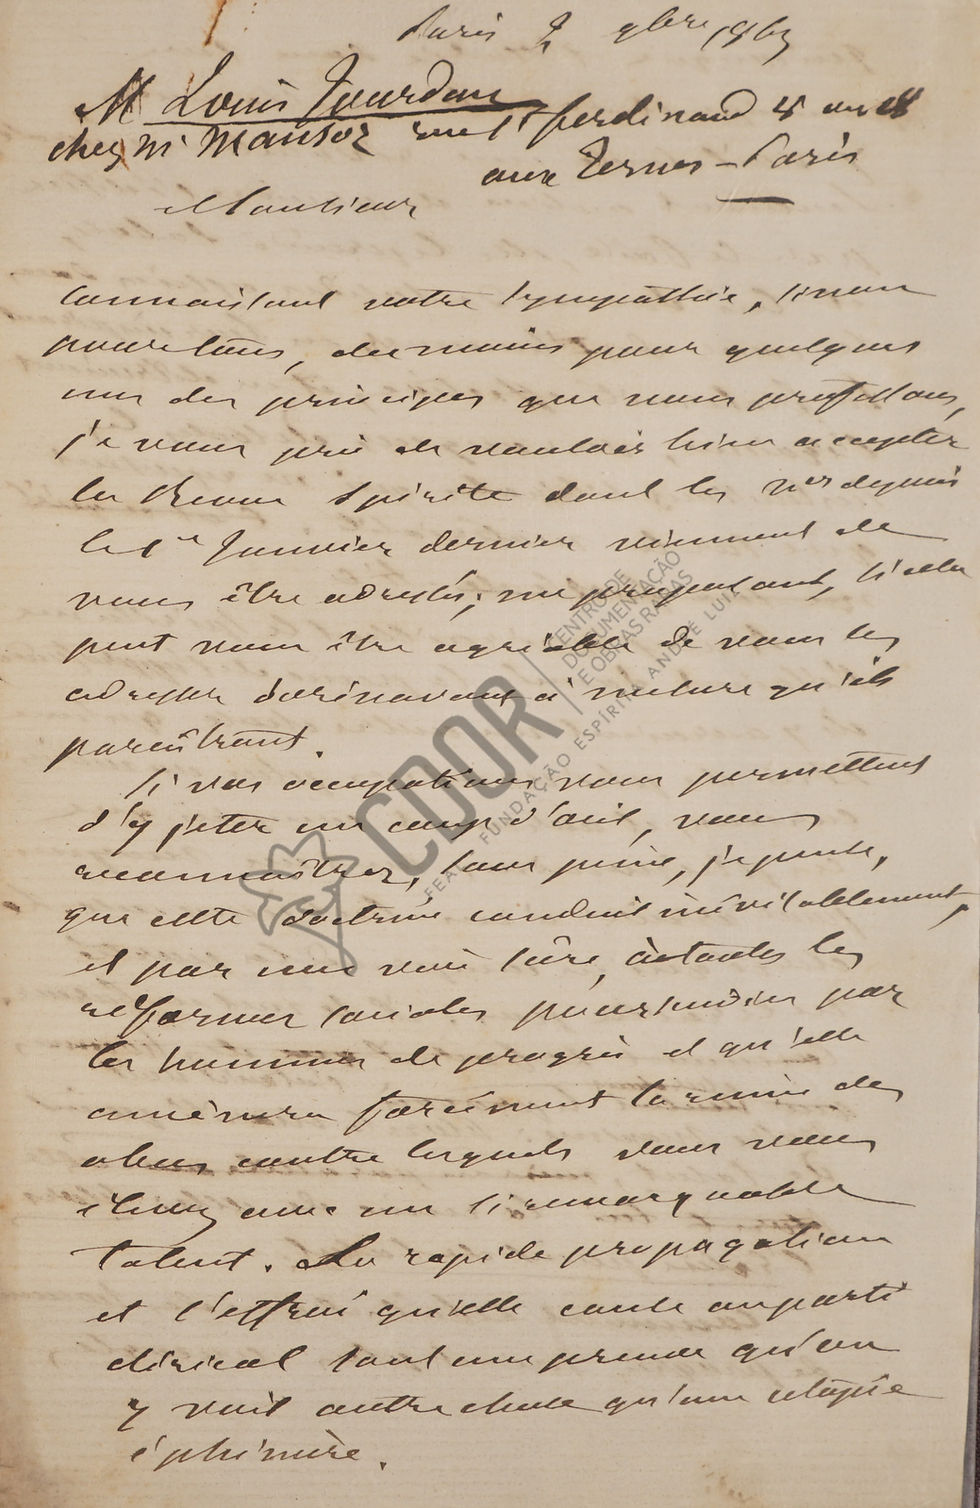 Paris 2 9bre 1863
M Louis Jourdan
chez Mr Mansoz rue St ferdinand
aux Ternes - Paris
Monsieur
Connaissant votre sympathie, sinon
pour tous, du moins pour quelques
uns des principes que nous professons,
je vous prie de vouloir bien accepter
la Revue Spirite dont les nos depuis
le 1er Janvier dernier viennent de
vous être adressés; me proposant, si cela
peut vous être agréable de vous les
adresser dorénavant à mesure qu'ils
paraîtront.
Si vos occupations vous permettent
d'y jeter un coup d'œil, vous
reconnaîtrez, sans peine, je pense,
que cette doctrine conduit inévitablement,
et par une voie sûre, à toutes les
réformes sociales poursuivies par
les hommes de progrès et qu'elle
amènera forcément la ruine des
abus contre lesquels vous vous
élevez avec un si remarquable
talent. La rapide propagation
et l'effroi qu'elle cause au parti
clérical sont une preuve qu'on
y voit autre chose qu'une utopie
éphémère.
CDOR
CENTRO DE
DOCUMENTAÇÃO
E OBRAS RARAS
FEAL FUNDAÇÃO ESPÍRITA ANDRÉ LUIZ